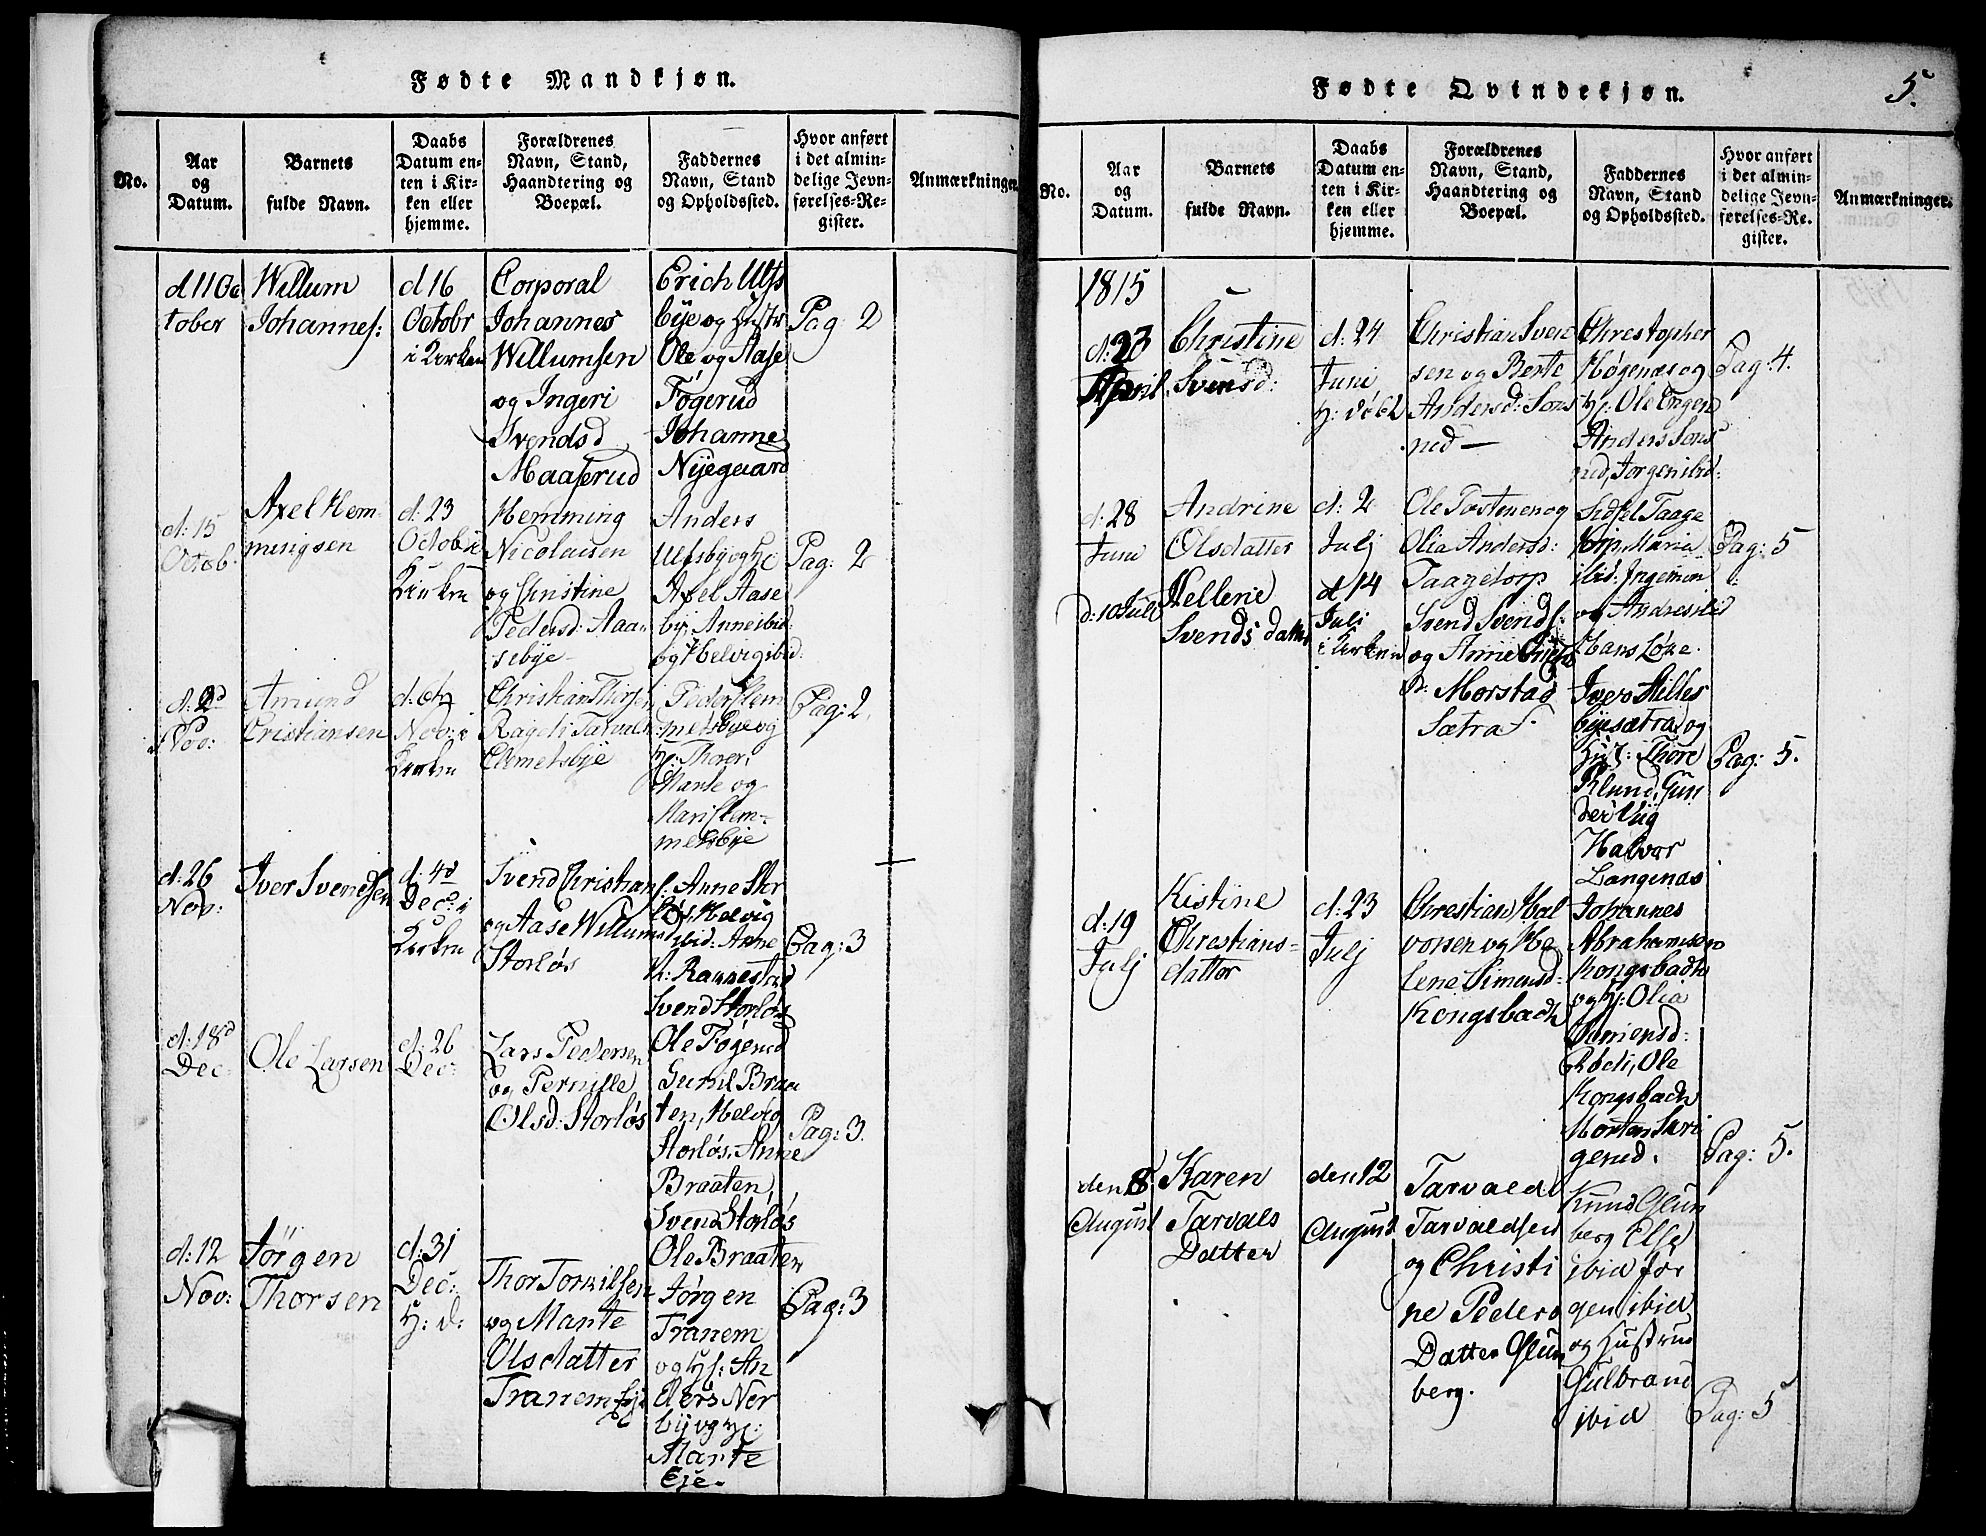 Fødte Mandkjøn.
No.
Aar
og
Datum.
Barnets
fulde Navn.
Daabs
Datum en-
ten i Kir-
ken eller
hjemme.
Forældrenes
Navn, Stand,
Haandtering og
Boepæl.
Faddernes
Navn, Stand
og Opholdssted.
Hvor anført
i det almin-
delige Jevn-
førelses-Re-
gister.
Anmærkninger.
d 11 Oc
tober
Willum
Johannes:
d 16
Octobr
i Kirken
Corporal
Johannes
Willumsen
og Ingeri
Svendsd
Maaserud
Erich Ulfs
bye og Hustr
Ole og Aase
Føgerud
Johanne
Nyegaard
Pag: 2
d: 15
Octob.
Axel Hem-
mingsen
d: 23
Octob i
Kirken
Hemming
Nicolaisen
og Christine
Pedersd: Aaa-
sebye
Anders
Ulfsby og H:
Axel Aase
by, Anne ibid:
og Helvig ibid:
Pag: 2
d: 2d
Nov:
Amund
Cristiansen
d: 6
Nov: i
Kirken
Christian
Ragdi Tarvals
Clemetsbye
Peder Klem
metsbye og
H: Thorer
Marte og
Mari Klem-
metsbye
Pag: 2
d: 26
Nov:
Iver Svendsen
d: 4d
Dec: i
Kirken
Svend Christians
og Aase Willumsd
Storløs
Anne Stor
løs, Helvig
ibid: Anne
K: Rannestad
Svend Storløs
Pag: 3
d: 18d
Dec:
Ole Larsen
d: 26
Dec:
Lars Pedersen
og Pernille
Olsd: Storløs
Ole Føgerud
Gunil Braa
ten, Helvig
Storløs, Anne
Braaten,
Svend Storløs
Pag: 3.
d: 12
Nov:
Jörgen
Thorsen
d: 31
Dec:
H: d:
Thor Torkilsen
og Marte
Olsdatter
Tranem Eje
Ole Braaten
Jörgen
Tranem
og H: An
ders Ner
by og H:
Marte
Eje.
Pag: 3
Fødte Qvindekjøn.
5.
No.
Aar
og
Datum.
Barnets
fulde Navn.
Daabs
Datum en-
ten i Kir-
ken eller
hjemme.
Forældrenes
Navn, Stand,
Haandtering og
Boepæl.
Faddernes
Navn, Stand
og Opholdssted.
Hvor anført
i det almin-
delige Jevn-
førelses-Re-
gister.
Anmærkninger.
1815
d: 23
April
Christine
Svensd:
d: 24
Juni
Christian Sven
sen og Berte
Andersd: Sons
rud
Chrestopher
Høgenæs og
H: Ole Engen
Anders Sons
rud, Jorgen ibid:
Pag: 4.
d: 28
Juni
Andrine
Olsdatter
d: 2
Julj
Ole Tostensen og
Olia Andersd:
Taagetorp
Sidsel Taage
torp, Maria
ibid: Ingemon
og Andreas ibid
Pag: 5
d: 10 Juli
Hellene
Svends datter
d 14
Juli
i Kirken
Svend Svends:
og Anne
Morstad
Sætra
Hans Løke
Iver Hilles
byesætra og
Hust: Thore
Klund, Gun
der Viig
Halvor
Langenæs
Pag: 5.
d: 19
Julj
Kistine
Chrestians-
datter
d: 23
Julj
Chrestian Hal
vorsen og He
lene Simensd:
Kongsbach
Johannes
Abrahamson
Kongsbach
og H: Olia
Rodi, Ole
Kongsbach
Morten Suri
gerud.
Pag: 5.
den 8
August
Karen
Tarvals
Datter
den 12
August
Tarvald
Tarvaldsen
og Christi
ne Peders
Datter Glun
berg.
Knud Glun
berg Else
ibid Jör
gen ibid
og Hustrue
Gulbrand
ibid
Pag: 5